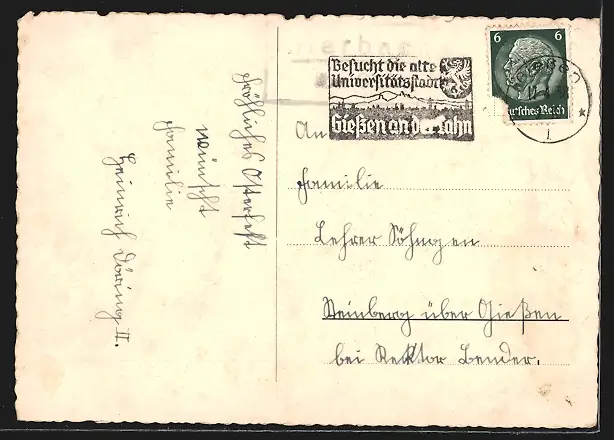 Fröhliches Osterfest
wünscht
Familie
Heinrich Döring II.
Besucht die alte
Universitätsstadt
Gießen an der Lahn
6 6
Deutsches Reich
An
Familie
Lehrer Söhngen
Steinberg über Gießen
bei Rektor Bender.